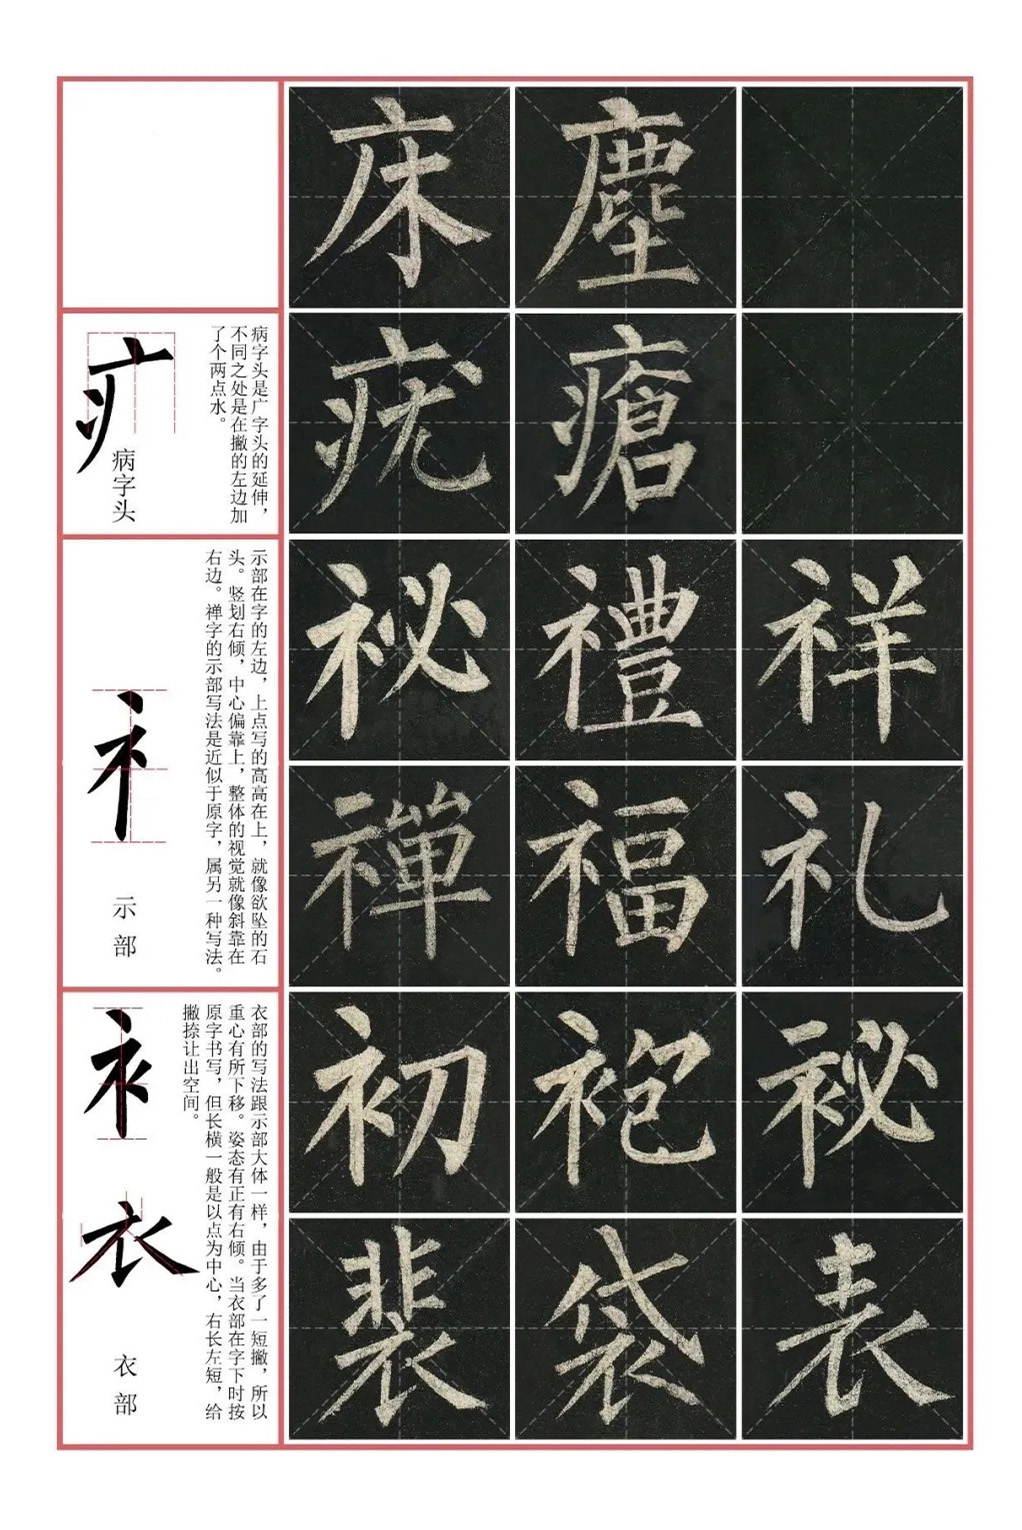 床 塵
疒
病字头
病字头是广字头的延伸，
不同之处是在撇的左边加
了个两点水。
疣 瘡
礻
示部
示部在字的左边，上点写的高高在上，就像欲坠的石
头。竖划右倾，中心偏靠上，整体的视觉就像斜靠在
右边。禅字的示部写法是近似于原字，属另一种写法。
祕 禮 祥
禪 福 礼
衤
衣
衣部
衣部的写法跟示部大体一样，由于多了一短撇，所以
重心有所下移。姿态有正有右倾。当衣部在字下时按
原字书写，但长横一般是以点为中心，右长左短，给
撇捺让出空间。
初 袍 祕
裴 袋 表